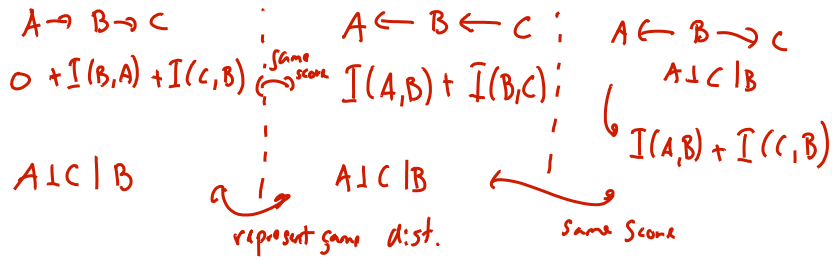 A → B → C
0 + I(B,A) + I(C,B)
same score
A ⊥ C | B
A ← B ← C
I(A,B) + I(B,C)
A ⊥ C | B
represent same dist.
A ← B → C
A ⊥ C | B
I(A,B) + I(C,B)
same score